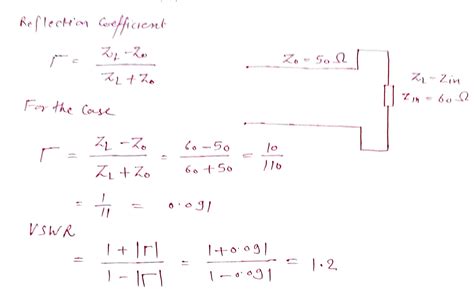 Reflection Coefficient
Γ = (Z_L - Z_0) / (Z_L + Z_0)
Z_0 = 50 Ω
Z_L - Z_in
Z_in = 60 Ω
For the Case
Γ = (Z_L - Z_0) / (Z_L + Z_0) = (60 - 50) / (60 + 50) = 10 / 110
= 1 / 11 = 0.091
VSWR
= (1 + |Γ|) / (1 - |Γ|) = (1 + 0.091) / (1 - 0.091) = 1.2